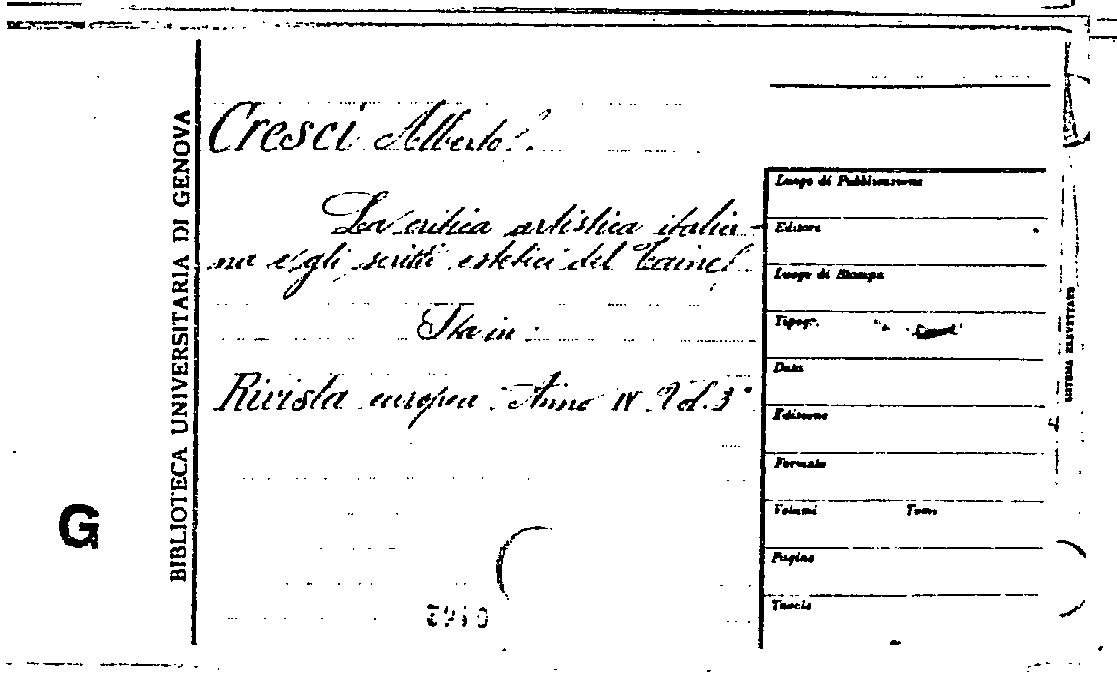 Cresci Alberto.
La critica artistica italia-
na e gli scritti estetici del Taine.
Sta in:
Rivista europea. Anno IV Vol. 3°
BIBLIOTECA UNIVERSITARIA DI GENOVA
G
Luogo di Pubblicazione
Editore
Luogo di Stampa
Tipogr.
Data
Edizione
Formato
Volumi Tomi
Pagine
Tavole
SISTEMA